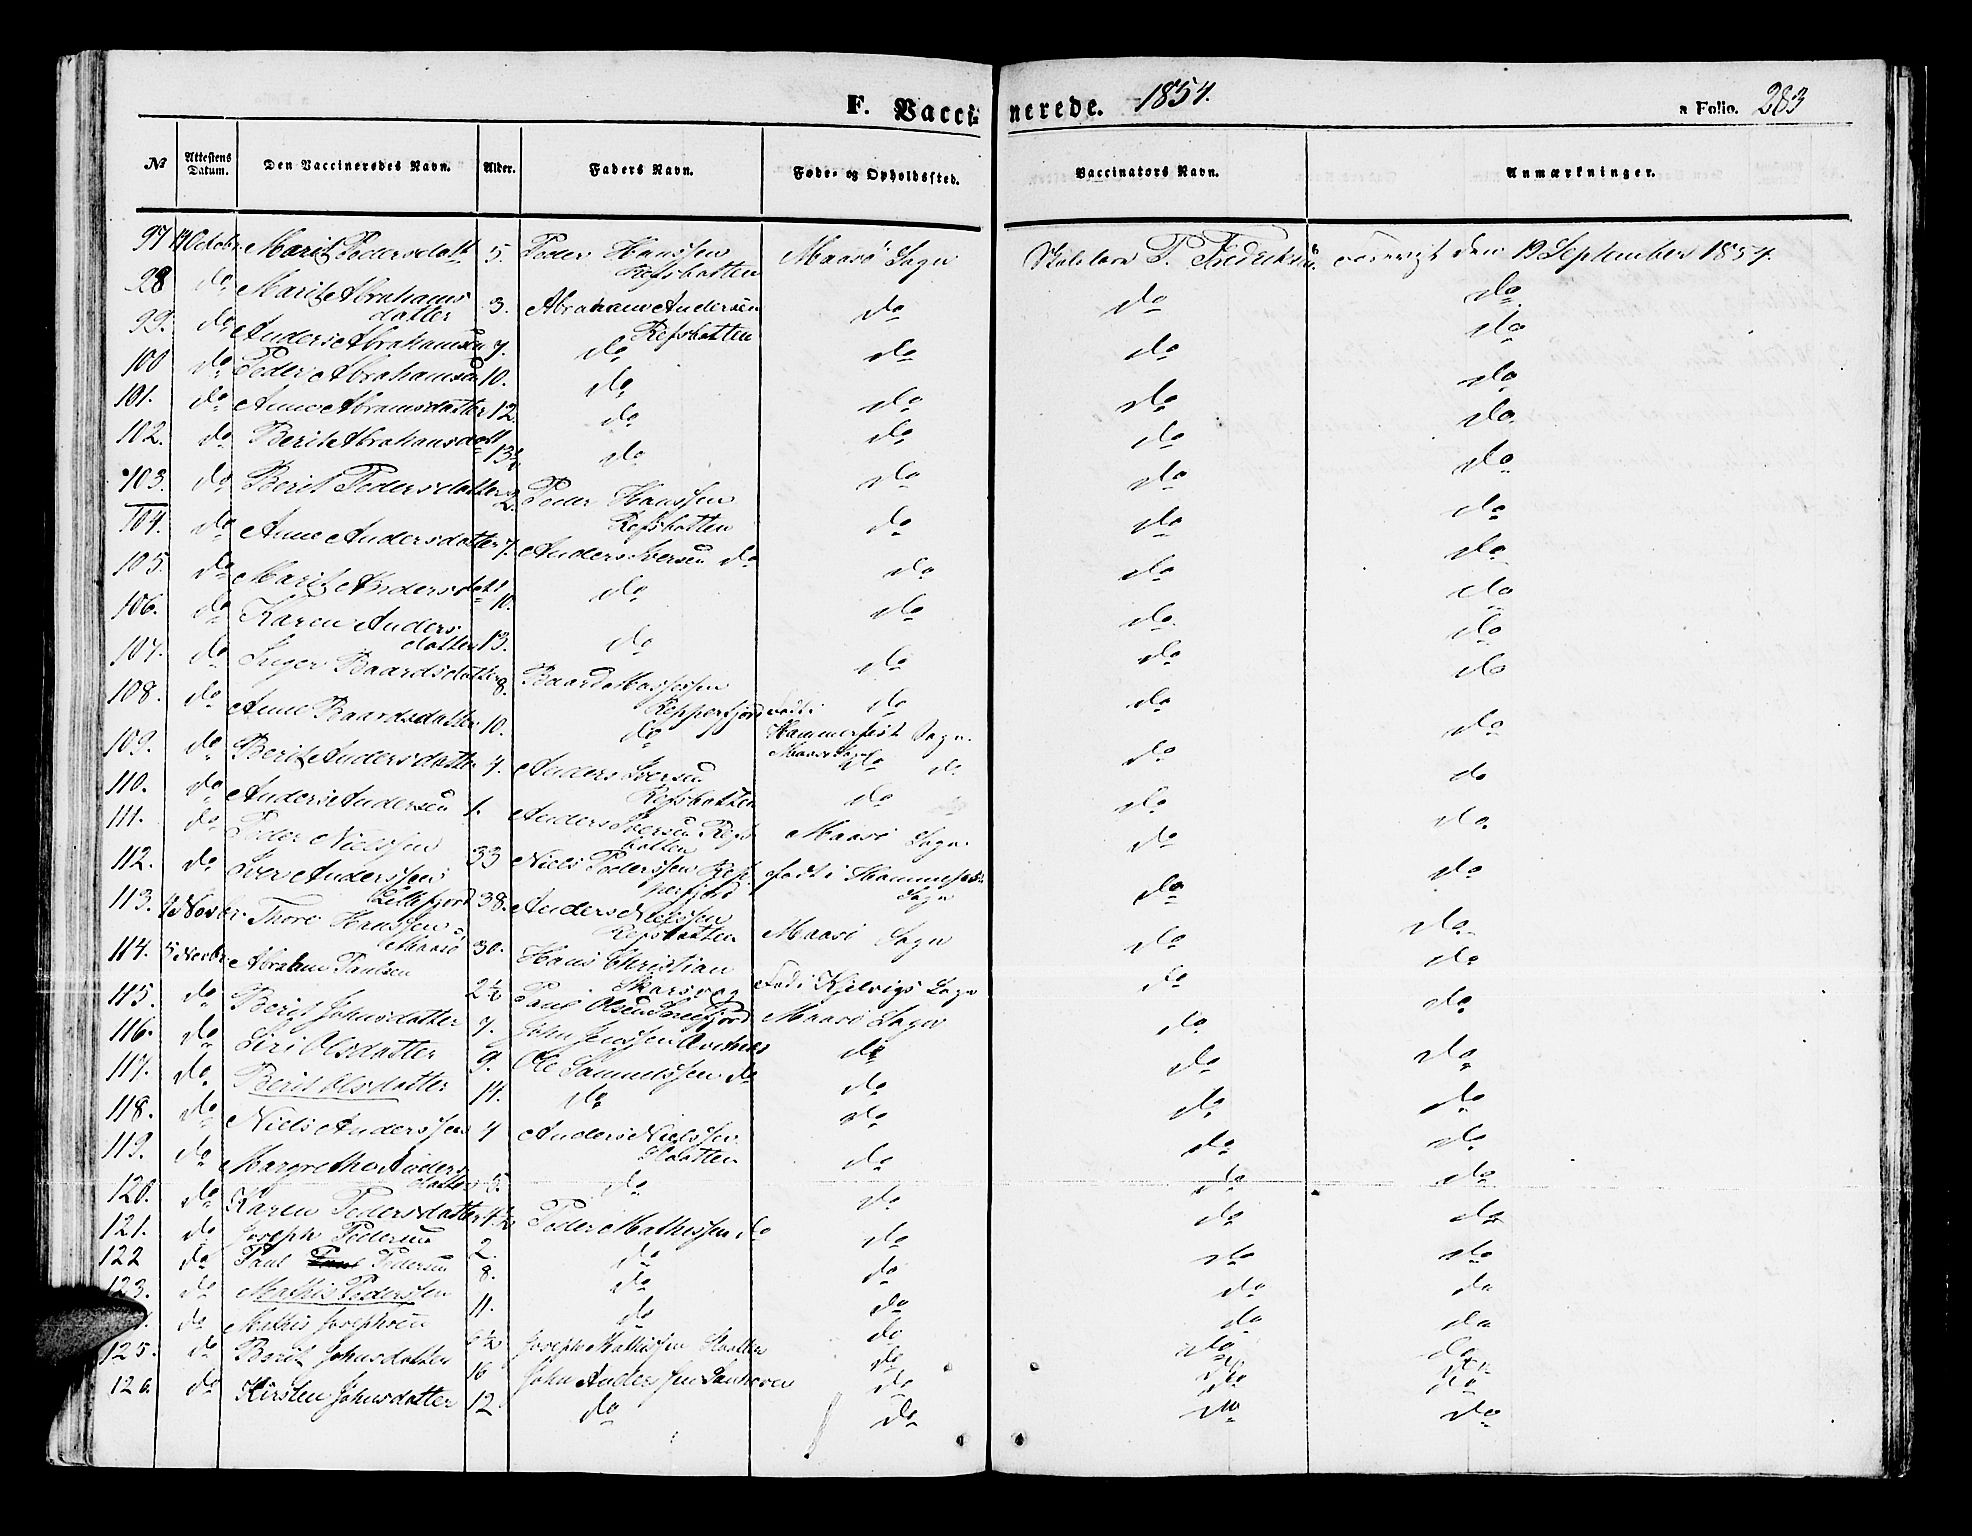 F. Vaccinerede. 1854. a Folio. 283
No Attestens Datum. Den Vaccineredes Navn. Alder. Faders Navn. Føde- og Opholdssted. Vaccinators Navn. Anmærkninger.
97 14 Octobr. Marit Pedersdatt 5. Peder Hanssen Refsbotten Maasø Sogn P. Fredriksen den 19 September 1854.
98 do Marit Abrahams datter 3. Abraham Andersen Refsbotten do do do
99. do Anders Abrahamsen 7. do do do do
100 do Peder Abrahamsen 10. do do do do
101. do Anne Abramsdatter 12. do do do do
102. do Berit Abrahamsdatt 13½ do do do do
103. do Berit Pedersdatter 2. Peder Hanssen Refsbotten do do do
104. do Anne Andersdatter 7. Anders Iversen do do do do
105. do Marit Andersdatt 10. do do do do
106. do Karen Anders datter 13. do do do do
107. do Inger Baardsdatter 8. Baard Repperfjord do do do
108. do Anne Baardsdatter 10. do Hammerfest Sogn. do do
109. do Berit Andersdatter 4. Anders Iversen Refsbotten do do do
110. do Anders Andersen 1. Anders Iversen Refsbotten Maasø Sogn do do
111. do Peder Nielssen 33 Niels Pederssen Repperfjord født i Hammerfest Sogn do do
112. do Iver Anderssen 38. Anders Nielssen Refsbotten Maasø Sogn do do
113. Thore Hanssen Maasø 30. Hans Christian Skarsvog Fød i Kjelvigs Sogn do do
114. 5 Novbr. Abraham Paulsen 2½ Paul Olsen Maasø Sogn do do
115. do Berit Johnsdatter 7. John Jenssen do do do
116. do Siri Olsdatter 9. Ole Samuelssen do do do do
117. do Berit Olsdatter 14. do do do do
118. do Niels Anderssen 4 Anders Nielssen do do do
119. do Margrethe Anders datter 5. do do do do
120. do Karen Pedersdatter 4½ Peder Mathissen do do do do
121. do Joseph Pedersen 2. do do do do
122 do Paul Pedersen 8. do do do do
123. do Mathis Pederssen 11. do do do do
do Mathis Josephsen Joseph Mathissen do do do
125. do Berit Johnsdatter 16 John Anderssen do do do
126. do Kirsten Johnsdatter 12. do do do do